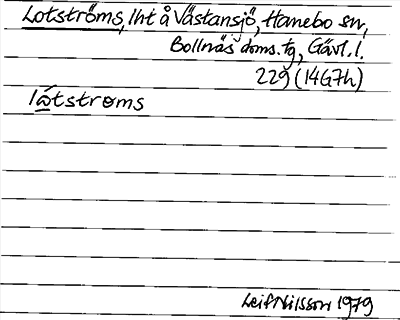 Lotströms, lht å Västansjö, Hanebo sn,
Bollnäs doms. tg, Gävl. l.
229 (14G7h)
låtstroms
Leif Nilsson 1979